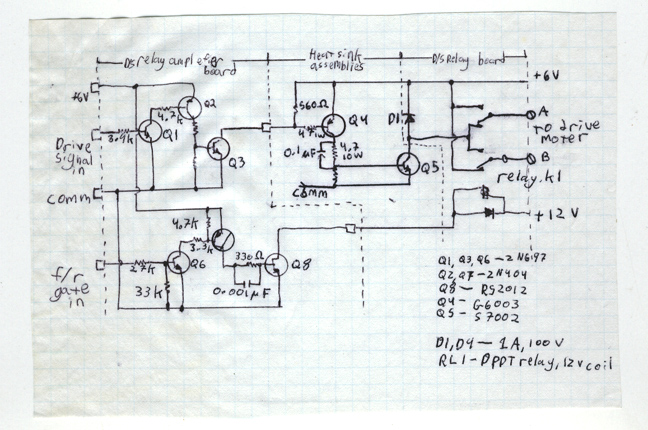 D/S relay amplefier board
Heat sink assemblies
D/S Relay board
+6V
+6V
Q2
4.7k
Q1
3.9k
Drive signal in
Q3
560Ω
Q4
0.1µF
4.7 10W
D1
Q5
A
To drive moter
B
relay, k1
comm
comm
+12V
4.7k
3.3k
330Ω
Q6
Q8
27k
33k
0.001µF
f/r gate in
Q1, Q3, Q6 — 2N6197
Q2, Q7 — 2N404
Q8 — RS2012
Q4 — G6003
Q5 — S7002
D1, D4 — 1A, 100V
RL1 — DPDT relay, 12v coil